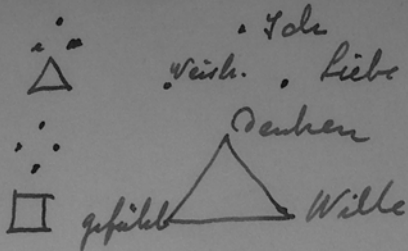 Ich
Weish. Liebe
Denken
gefühl Wille